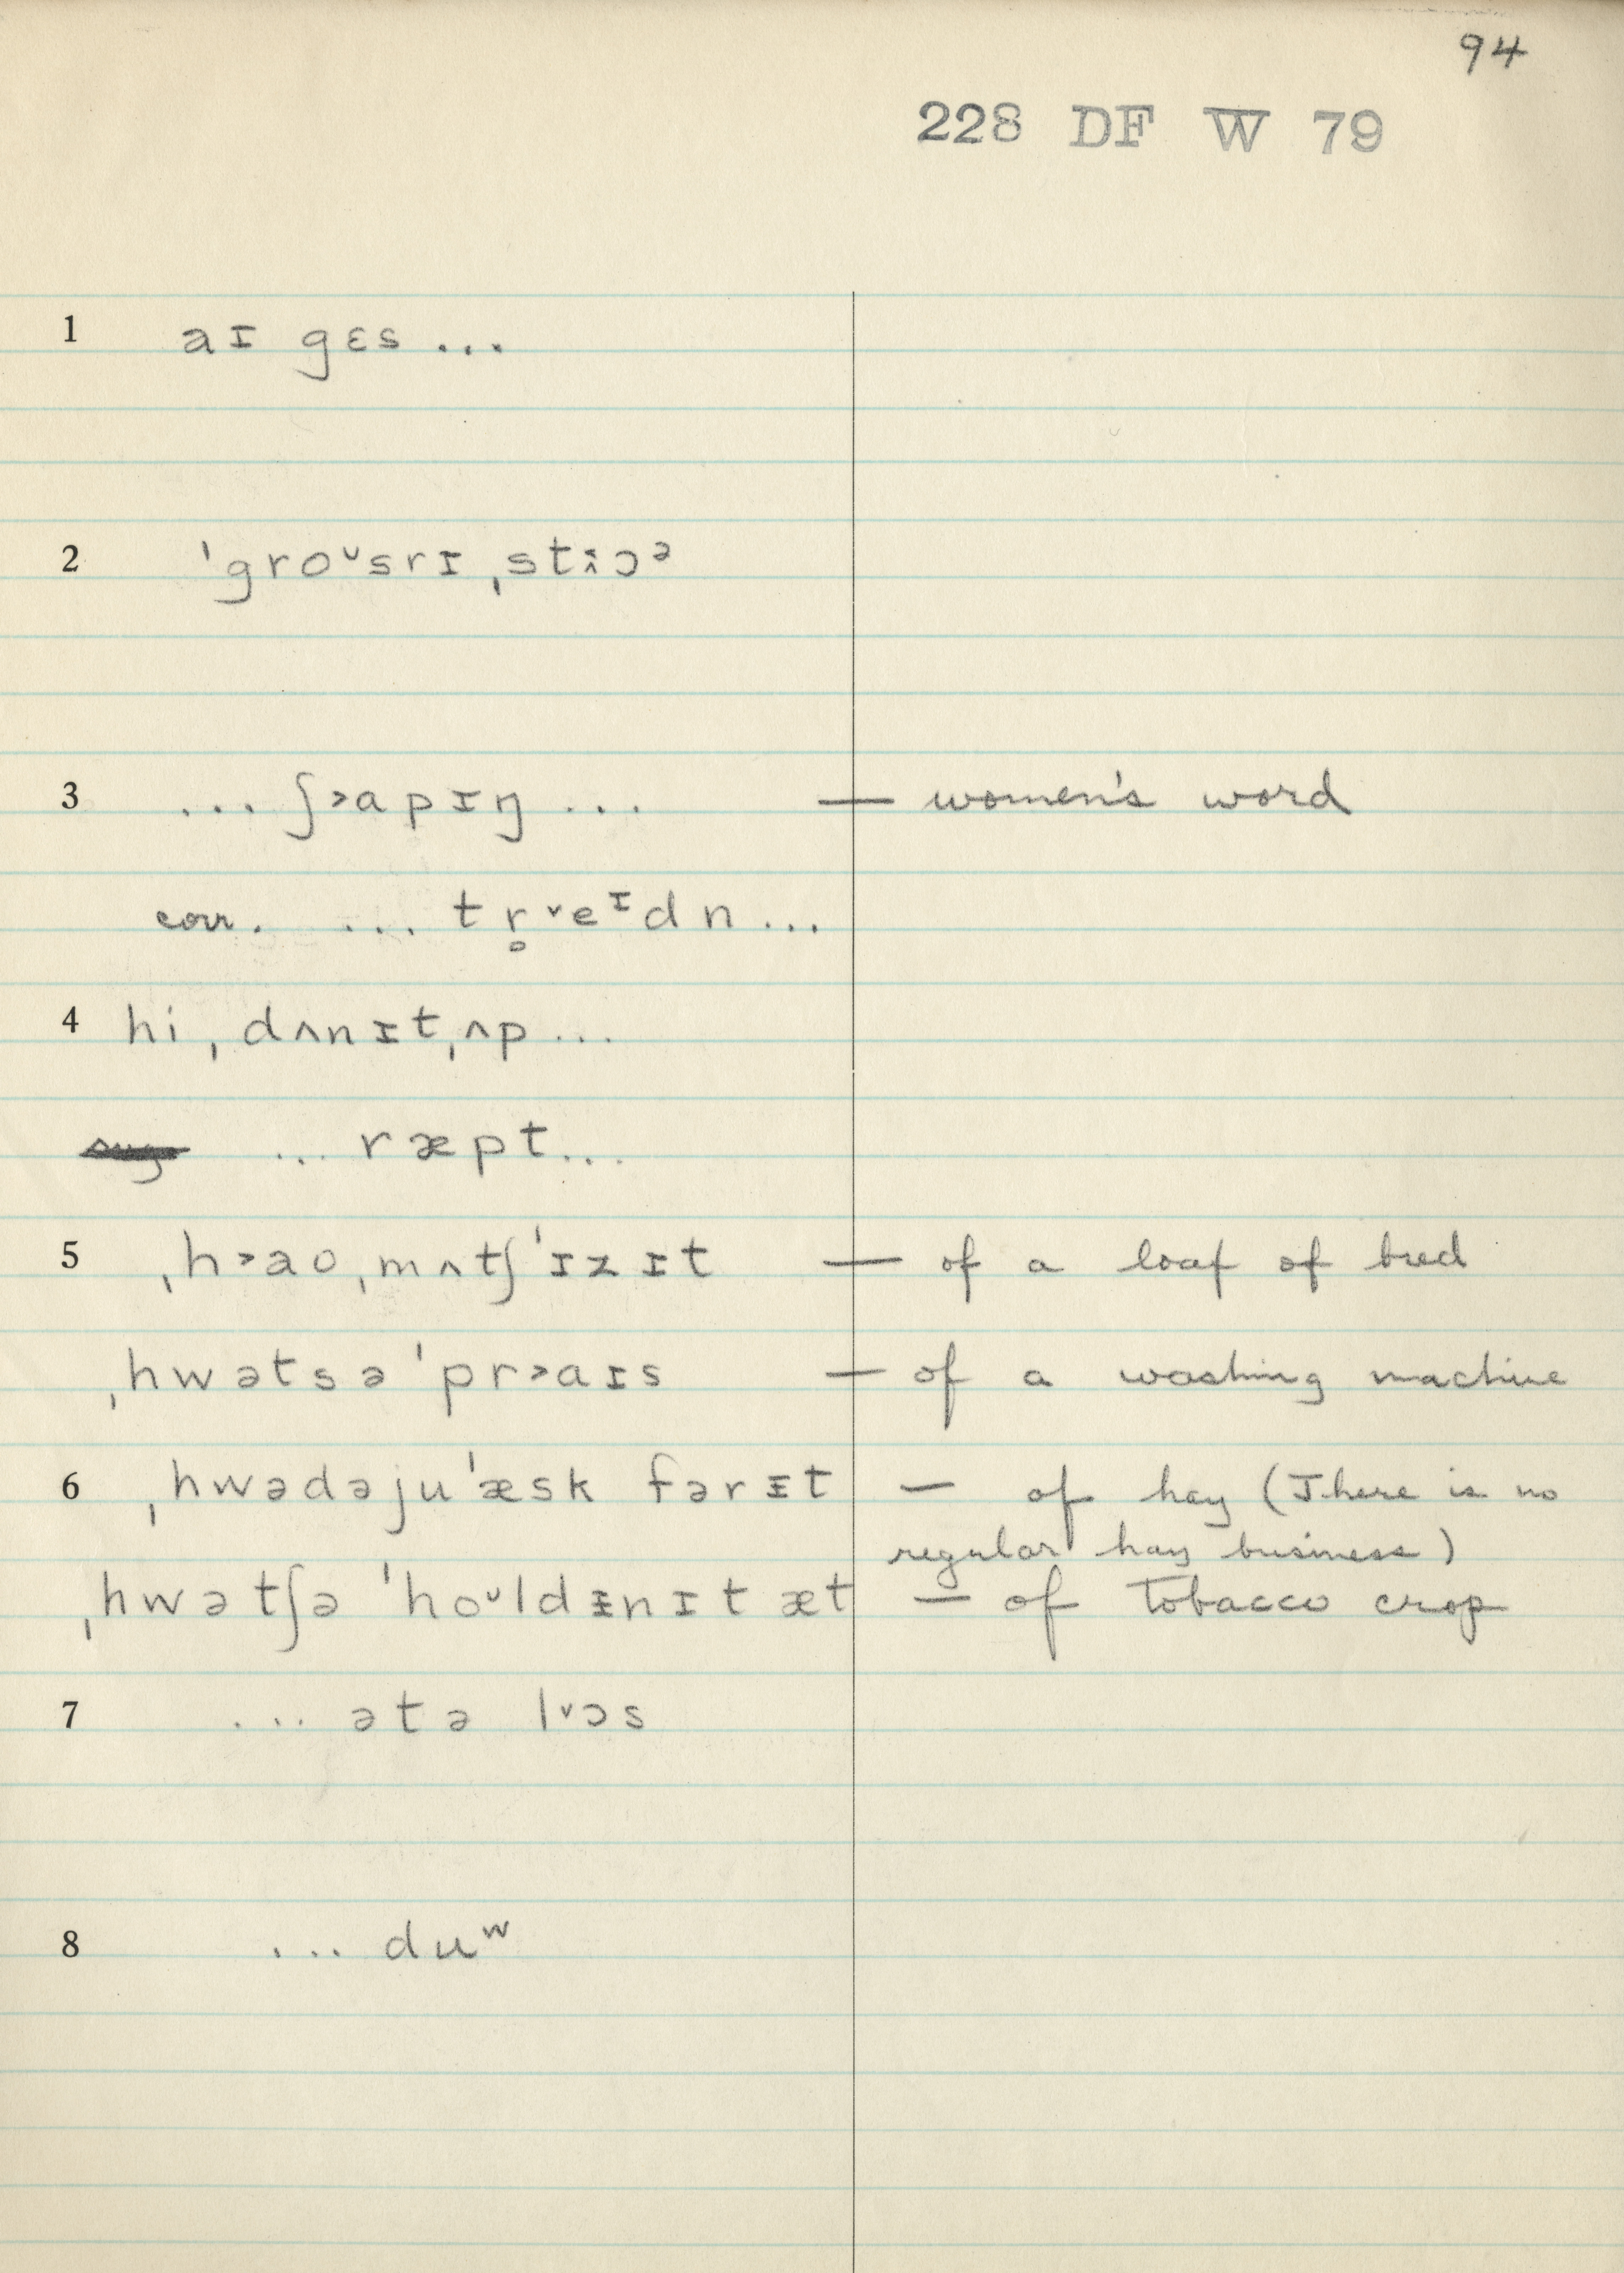 94
228 DF W 79
1 aɪ gɛs ...
2 ˈgroᶷsrɪ ˌst˰ɔᵊ
3 ... ʃ˃apɪŋ ... — women's word
corr. ... tr̥˅eᶦdn ...
4 hi ˌdʌnɪtˌʌp ...
... ræpt ...
5 ˌh˃aoˌmʌtʃˈɪzɪt — of a loaf of bred
ˌhwətsəˈpr˃aɪs — of a washing machine
6 ˌhwədəjuˈæsk fərɪt — of hay (There is no
regular hay business)
ˌhwətʃə ˈhoᶷldɪnɪt æt — of tobacco crop
7 ... ətə l˅ɔs
8 ... duʷ